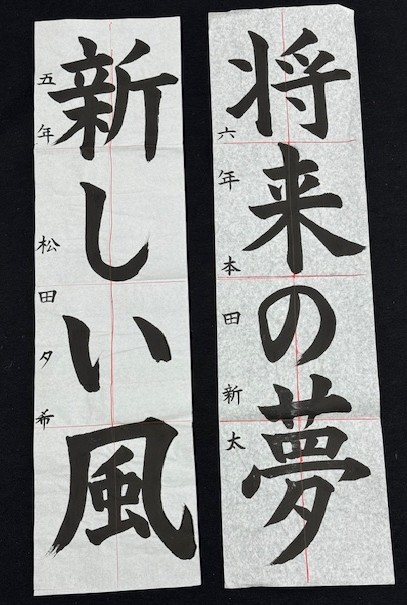 将来の夢
六年 本田 新太
新しい風
五年 松田 夕希